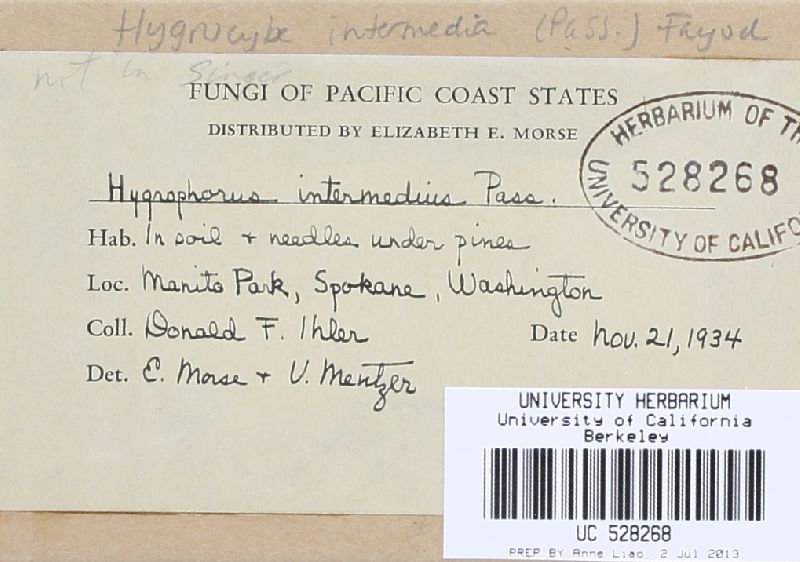 Hygrocybe intermedia (Pass.) Fayod
not in Singer
FUNGI OF PACIFIC COAST STATES
DISTRIBUTED BY ELIZABETH E. MORSE
HERBARIUM OF TH
528268
UNIVERSITY OF CALIFO
Hygrophorus intermedius Pass.
Hab. In soil + needles under pines
Loc. Manito Park, Spokane, Washington
Coll. Donald F. Ihler Date Nov. 21, 1934
Det. E. Morse + V. Mentzer
UNIVERSITY HERBARIUM
University of California
Berkeley
UC 528268
PREP BY Anne Liao, 2 Jul 2013